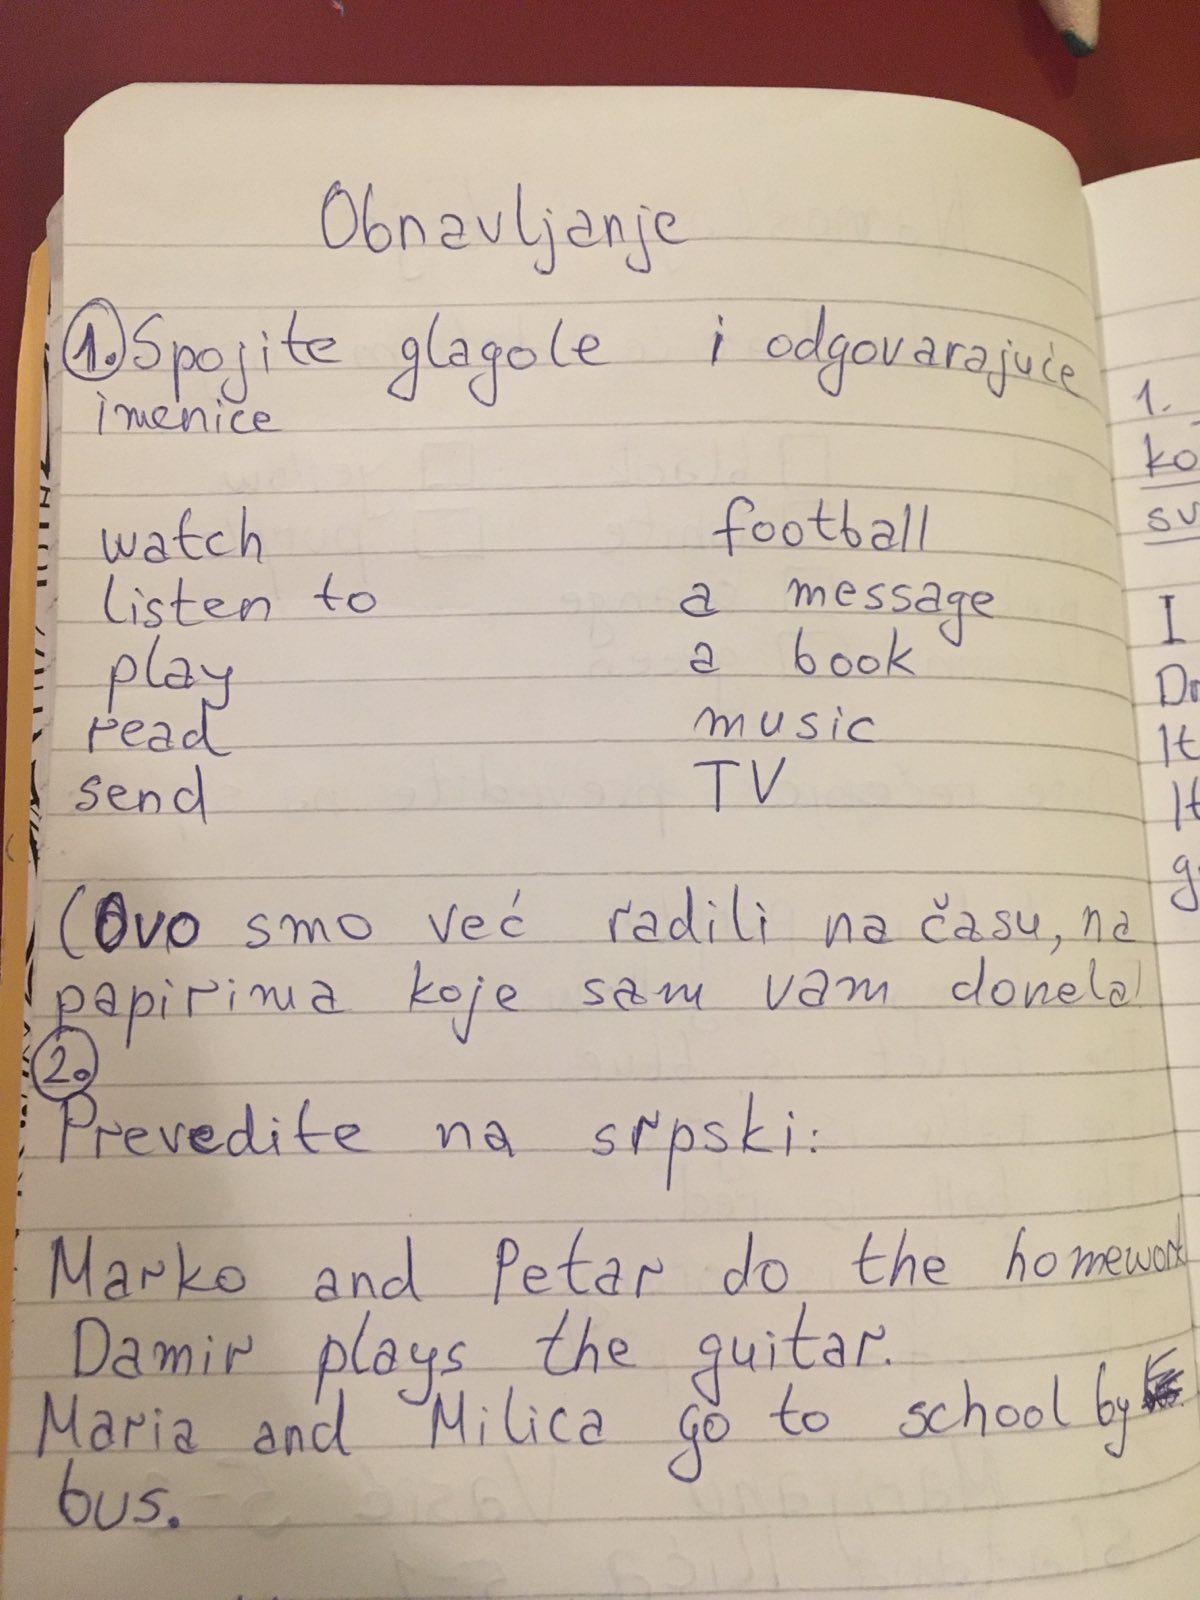 Obnavljanje
1. Spojite glagole i odgovarajuće
imenice
watch football
listen to a message
play a book
read music
send TV
(Ovo smo već radili na času, na
papirima koje sam vam donela)
2.
Prevedite na srpski:
Marko and Petar do the homework
Damir plays the guitar.
Maria and Milica go to school by
bus.
1.
ko
su
I
Dr
It
It
g